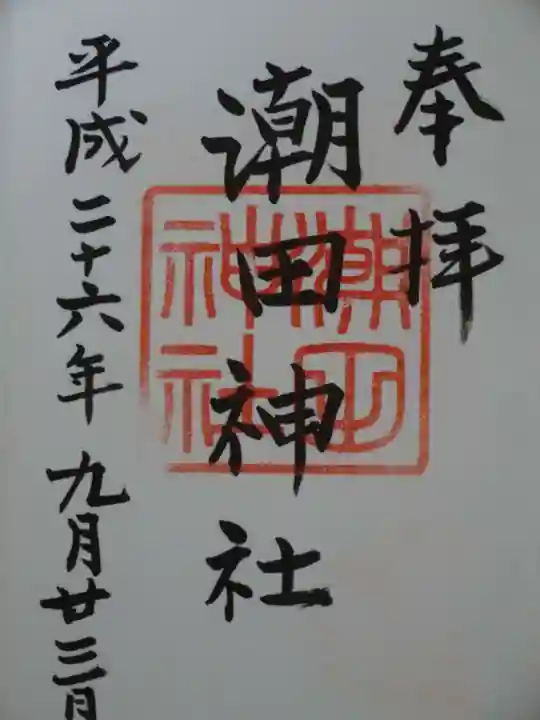 奉拝
潮田神社
潮田神社
平成二十六年九月廿三日